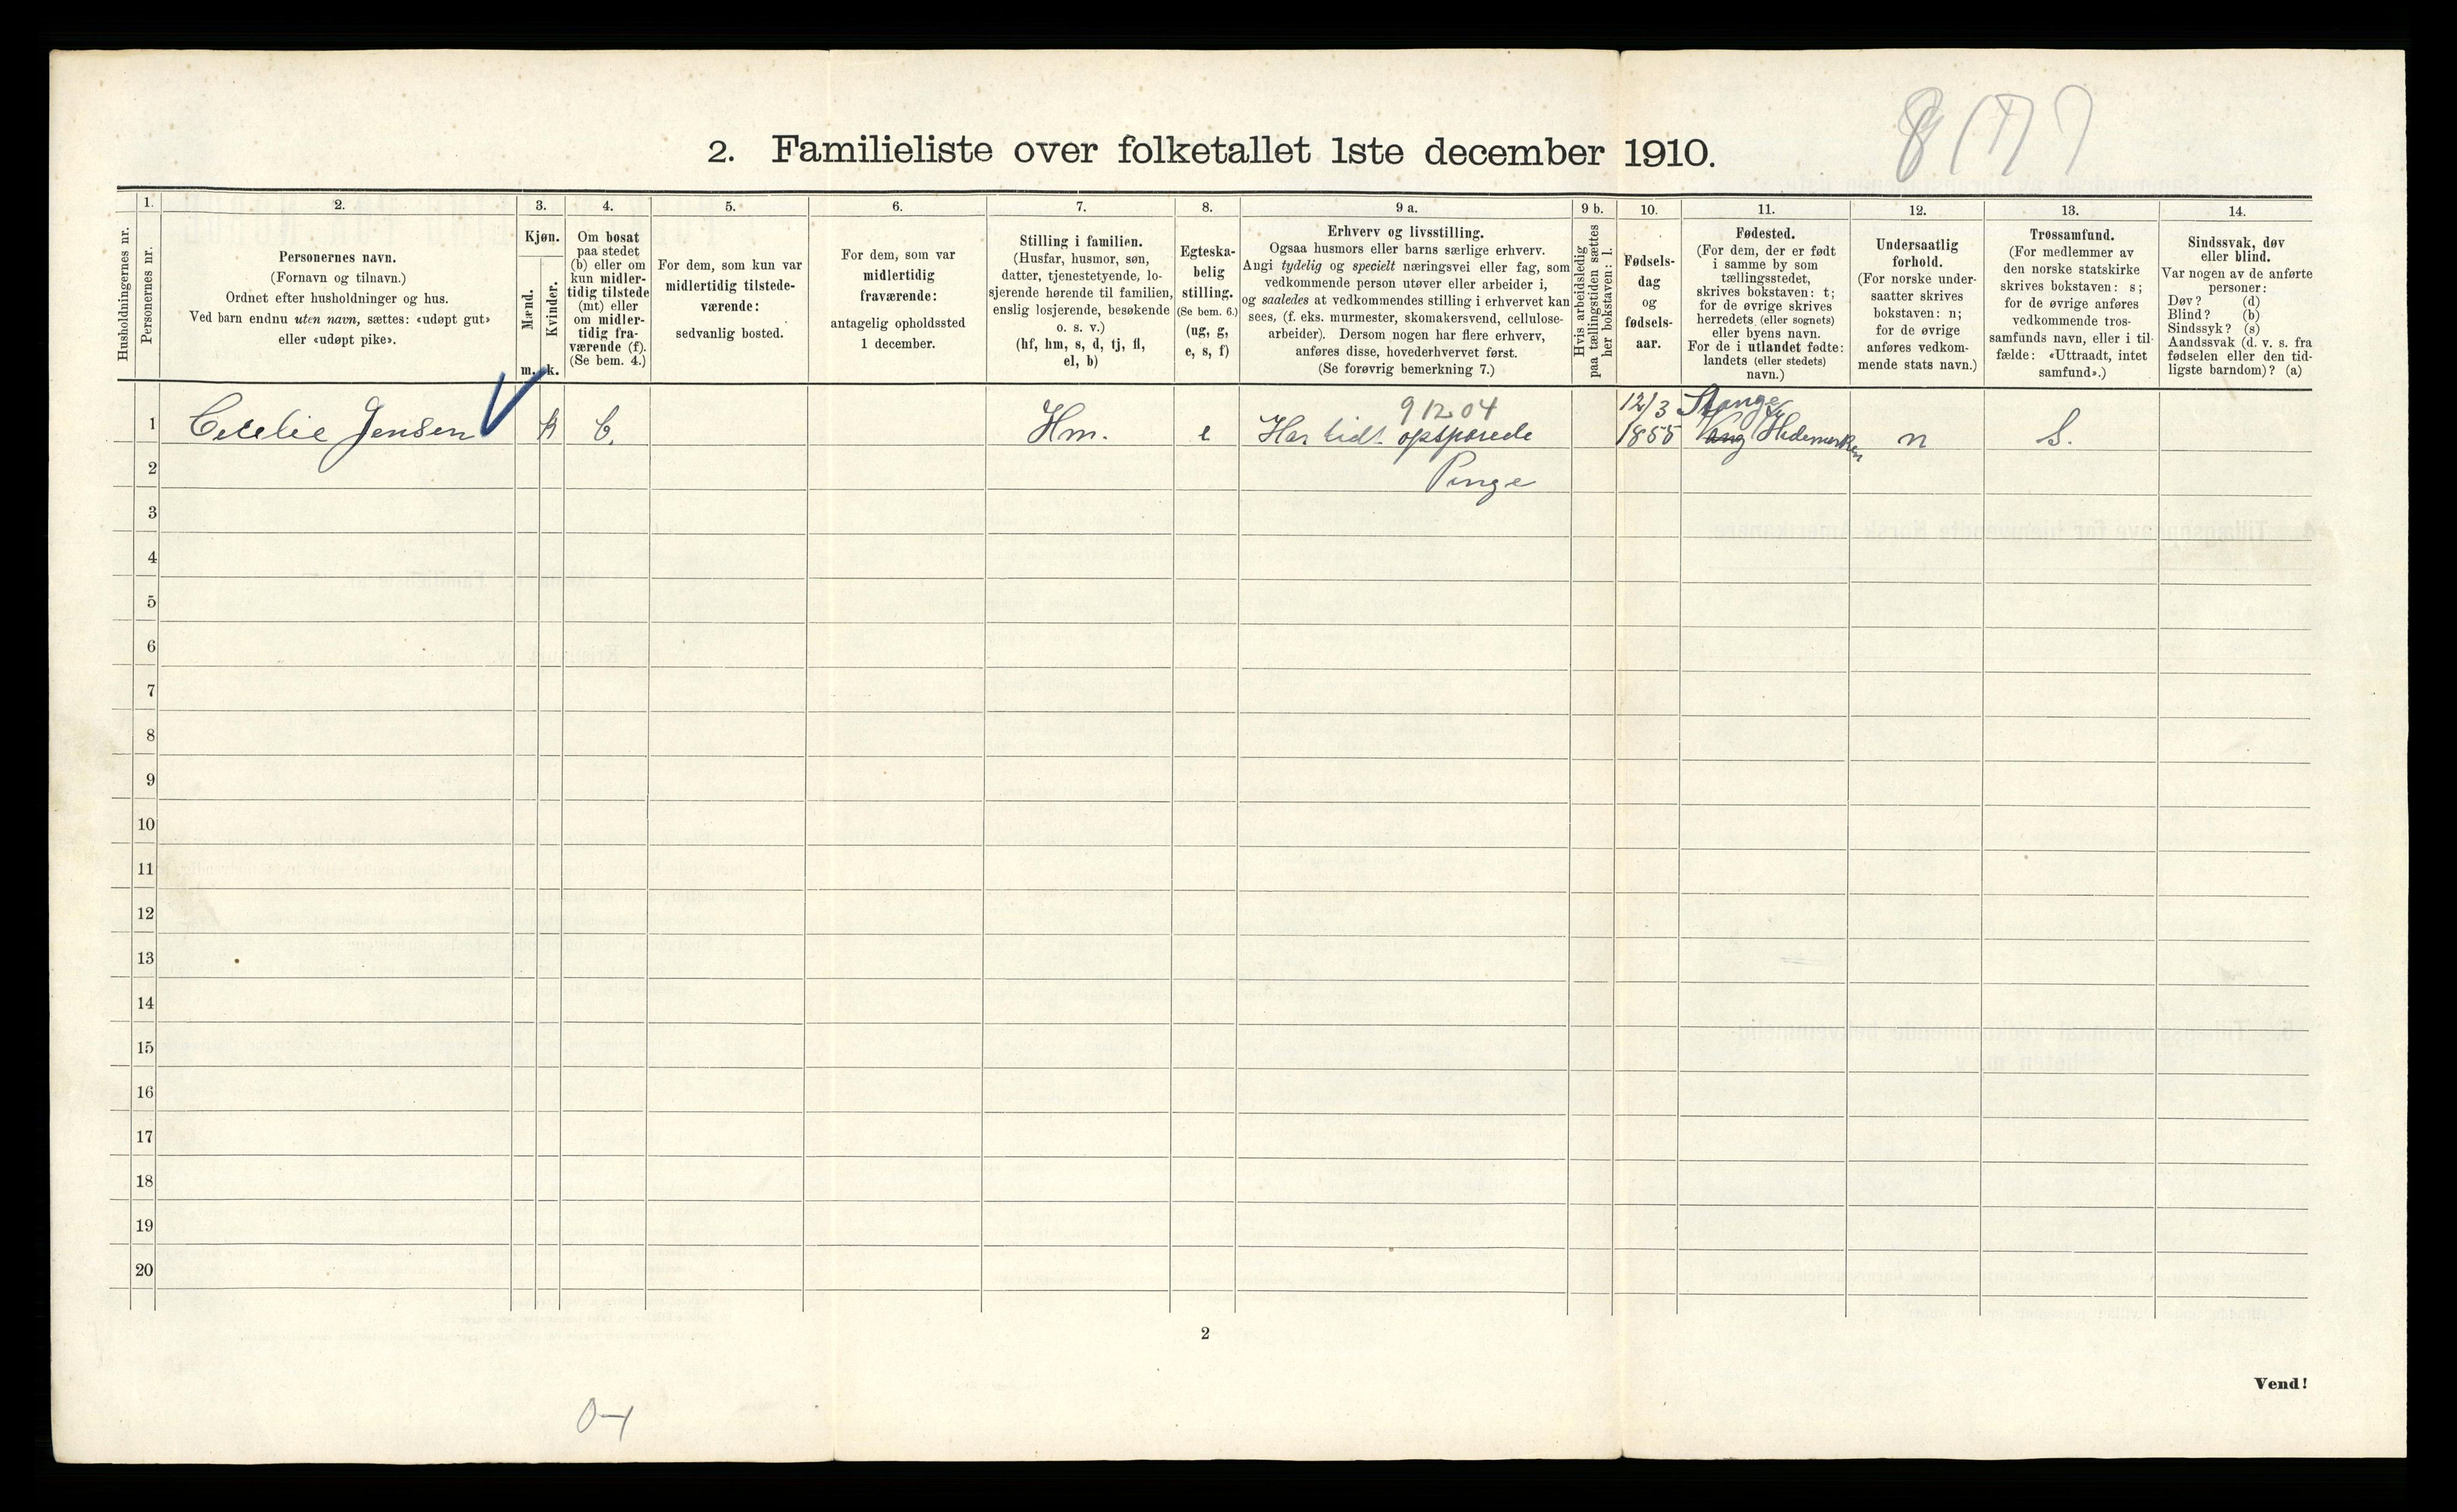 8 (7)
2. Familieliste over folketallet 1ste december 1910.
Husholdningernes nr.
1.
Personernes nr.
2.
Personernes navn.
(Fornavn og tilnavn.)
Ordnet efter husholdninger og hus.
Ved barn endnu uten navn, sættes: «udøpt gut»
eller «udøpt pike».
3.
Kjøn.
Mænd.
Kvinder.
m. k.
4.
Om bosat
paa stedet
(b) eller om
kun midler-
tidig tilstede
(mt) eller
om midler-
tidig fra-
værende (f).
(Se bem. 4.)
5.
For dem, som kun var
midlertidig tilstede-
værende:
sedvanlig bosted.
6.
For dem, som var
midlertidig
fraværende:
antagelig opholdssted
1 december.
7.
Stilling i familien.
(Husfar, husmor, søn,
datter, tjenestetyende, lo-
sjerende hørende til familien,
enslig losjerende, besøkende
o. s. v.)
(hf, hm, s, d, tj, fl,
el, b)
8.
Egteska-
belig
stilling.
(Se bem. 6.)
(ug, g,
e, s, f)
9 a.
Erhverv og livsstilling.
Ogsaa husmors eller barns særlige erhverv.
Angi tydelig og specielt næringsvei eller fag, som
vedkommende person utøver eller arbeider i,
og saaledes at vedkommendes stilling i erhvervet kan
sees, (f. eks. murmester, skomakersvend, cellulose-
arbeider). Dersom nogen har flere erhverv,
anføres disse, hovederhvervet først.
(Se forøvrig bemerkning 7.)
9 b.
Hvis arbeidsledig
paa tællingstiden sættes
her bokstaven: l.
10.
Fødsels-
dag
og
fødsels-
aar.
11.
Fødested.
(For dem, der er født
i samme by som
tællingsstedet,
skrives bokstaven: t;
for de øvrige skrives
herredets (eller sognets)
eller byens navn.
For de i utlandet fødte:
landets (eller stedets)
navn.)
12.
Undersaatlig
forhold.
(For norske under-
saatter skrives
bokstaven: n;
for de øvrige
anføres vedkom-
mende stats navn.)
13.
Trossamfund.
(For medlemmer av
den norske statskirke
skrives bokstaven: s;
for de øvrige anføres
vedkommende tros-
samfunds navn, eller i til-
fælde: «Uttraadt, intet
samfund».)
14.
Sindssvak, døv
eller blind.
Var nogen av de anførte
personer:
Døv? (d)
Blind? (b)
Sindssyk? (s)
Aandssvak (d. v. s. fra
fødselen eller den tid-
ligste barndom)? (a)
91204 12/3 Stange
1 Cecelie Jensen k b. Hm. e Har lidt opsparede 1855 Vang Hedemarken n S.
2 Penge
3
4
5
6
7
8
9
10
11
12
13
14
15
16
17
18
19
20
2
Vend!
0-1